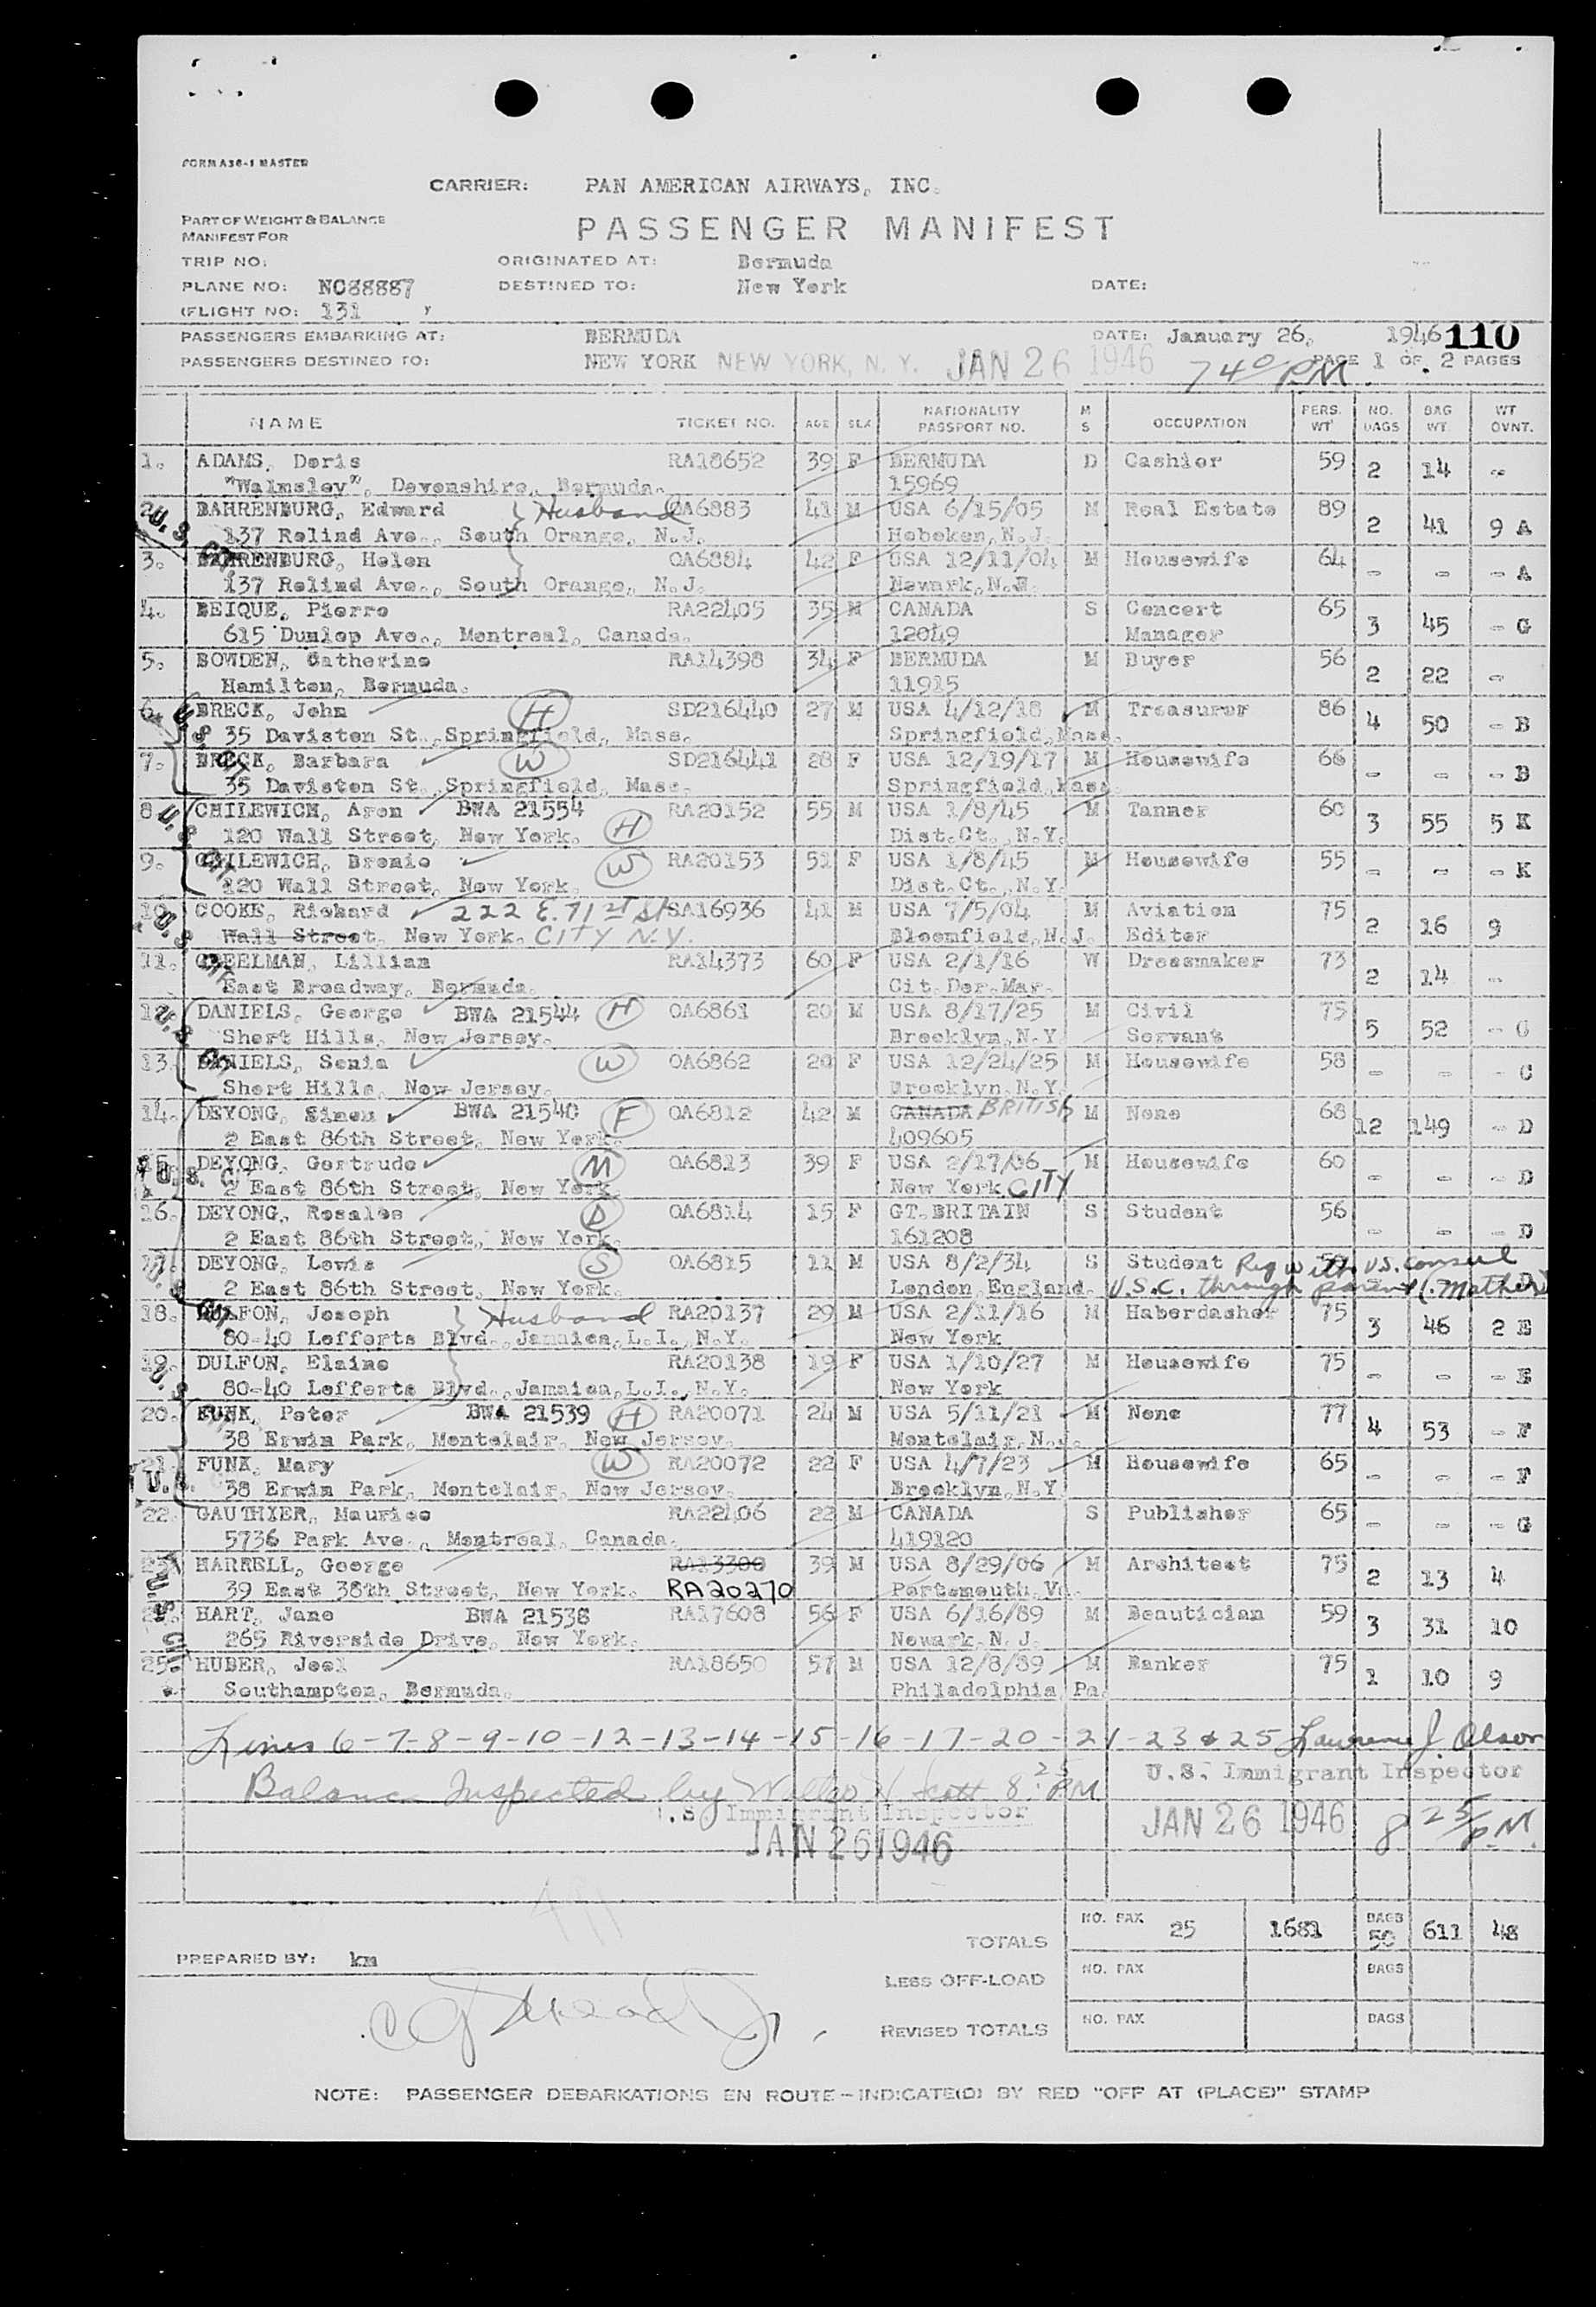 FORM A36-1 MASTER
CARRIER: PAN AMERICAN AIRWAYS, INC.
PART OF WEIGHT & BALANCE
MANIFEST FOR
PASSENGER MANIFEST
TRIP NO: ORIGINATED AT: Bermuda
PLANE NO: NC88887 DESTINED TO: New York DATE:
(FLIGHT NO: 131
PASSENGERS EMBARKING AT: BERMUDA DATE: January 26, 1946 110
PASSENGERS DESTINED TO: NEW YORK NEW YORK, N. Y. JAN 26 1946 7 40 PM PAGE 1 OF 2 PAGES
NAME TICKET NO. AGE SEX NATIONALITY PASSPORT NO. M S OCCUPATION PERS. WT NO. BAGS BAG WT. WT OVNT.
1. ADAMS, Doris RA18652 39 F BERMUDA D Cashier 59 2 14 -
"Walmsley", Devonshire, Bermuda. 15969
2. BAHRENBURG, Edward Husband OA6883 41 M USA 6/15/05 M Real Estate 89 2 41 9 A
137 Relind Ave., South Orange, N.J. Hoboken, N.J.
3. BAHRENBURG, Helen OA6884 42 F USA 12/11/04 M Housewife 64 - - - A
137 Relind Ave., South Orange, N.J. Newark, N.J.
4. BEIQUE, Pierre RA22405 35 M CANADA S Concert 65 3 45 - G
615 Dunlop Ave., Montreal, Canada. 12049 Manager
5. BOWDEN, Catherine RA14398 34 F BERMUDA M Buyer 56 2 22 -
Hamilton, Bermuda. 11915
6. BRECK, John H SD216440 27 M USA 4/12/18 M Treasurer 86 4 50 - B
35 Daviston St., Springfield, Mass. Springfield, Mass.
7. BRECK, Barbara W SD216441 28 F USA 12/19/17 M Housewife 66 - - - B
35 Daviston St., Springfield, Mass. Springfield, Mass.
8. CHILEWICH, Aron BWA 21554 H RA20152 55 M USA 1/8/45 M Tanner 60 3 55 5 K
120 Wall Street, New York. Dist. Ct., N.Y.
9. CHILEWICH, Bronio W RA20153 51 F USA 1/8/45 M Housewife 55 - - - K
120 Wall Street, New York. Dist. Ct., N.Y.
10. COOKE, Richard 222 E. 71 ST St SA16936 41 M USA 7/5/04 M Aviation 75 2 16 9
Wall Street, New York. CITY N.Y. Bloomfield, N.J. Editor
11. CREELMAN, Lillian RA14373 60 F USA 2/1/16 W Dressmaker 73 2 14 -
East Broadway, Bermuda. Cit. Der. Mar.
12. DANIELS, George BWA 21544 H OA6861 20 M USA 8/17/25 M Civil 75 5 52 - C
Short Hills, New Jersey. Brooklyn, N.Y. Servant
13. DANIELS, Senia W OA6862 20 F USA 12/24/25 M Housewife 58 - - - C
Short Hills, New Jersey. Brooklyn, N.Y.
14. DEYONG, Simon BWA 21540 F OA6812 42 M CANADA BRITISH M None 68 12 149 - D
2 East 86th Street, New York. 409605
15. DEYONG, Gertrude M OA6813 39 F USA 2/17/06 M Housewife 60 - - - D
2 East 86th Street, New York. New York CITY
16. DEYONG, Rosales D OA6814 15 F GT. BRITAIN S Student 56 - - - D
2 East 86th Street, New York. 161208
17. DEYONG, Lewis S OA6815 11 M USA 8/2/34 S Student Reg with U.S. Consul
2 East 86th Street, New York. London, England. U.S.C. through parent (Mother) D
18. DULFON, Joseph Husband RA20137 29 M USA 2/11/16 M Haberdasher 75 3 46 2 E
80-40 Lefferts Blvd., Jamaica, L.I., N.Y. New York
19. DULFON, Elaine RA20138 19 F USA 1/10/27 M Housewife 75 - - - E
80-40 Lefferts Blvd., Jamaica, L.I., N.Y. New York
20. FUNK, Peter BWA 21539 H RA20071 24 M USA 5/11/21 M None 77 4 53 - F
38 Erwin Park, Montclair, New Jersey. Montclair, N.J.
21. FUNK, Mary W RA20072 22 F USA 4/7/23 M Housewife 65 - - - F
38 Erwin Park, Montclair, New Jersey. Brooklyn, N.Y.
22. GAUTHIER, Maurice RA22406 22 M CANADA S Publisher 65 - - - G
5736 Park Ave., Montreal, Canada. 419120
23. HARRELL, George RA13300 39 M USA 8/29/06 M Architect 75 2 13 4
39 East 38th Street, New York. RA20270 Portsmouth, Va.
24. HART, Jane BWA 21538 RA17608 56 F USA 6/16/89 M Beautician 59 3 31 10
265 Riverside Drive, New York. Newark, N.J.
25. HUBER, Joel RA18650 57 M USA 12/8/89 M Banker 75 1 10 9
Southampton, Bermuda. Philadelphia Pa.
Lines 6-7-8-9-10-12-13-14-15-16-17-20-21-23 & 25 Lawrence J. Olson
U.S. Immigrant Inspector
Balance Inspected by Walter H Scott 8 25 PM
U.S. Immigrant Inspector
JAN 26 1946 JAN 26 1946 8 25 P.M.
TOTALS NO. PAX 25 1681 BAGS 50 611 48
PREPARED BY: km
LESS OFF-LOAD NO. PAX BAGS
REVISED TOTALS NO. PAX BAGS
NOTE: PASSENGER DEBARKATIONS EN ROUTE—INDICATE(D) BY RED "OFF AT (PLACE)" STAMP